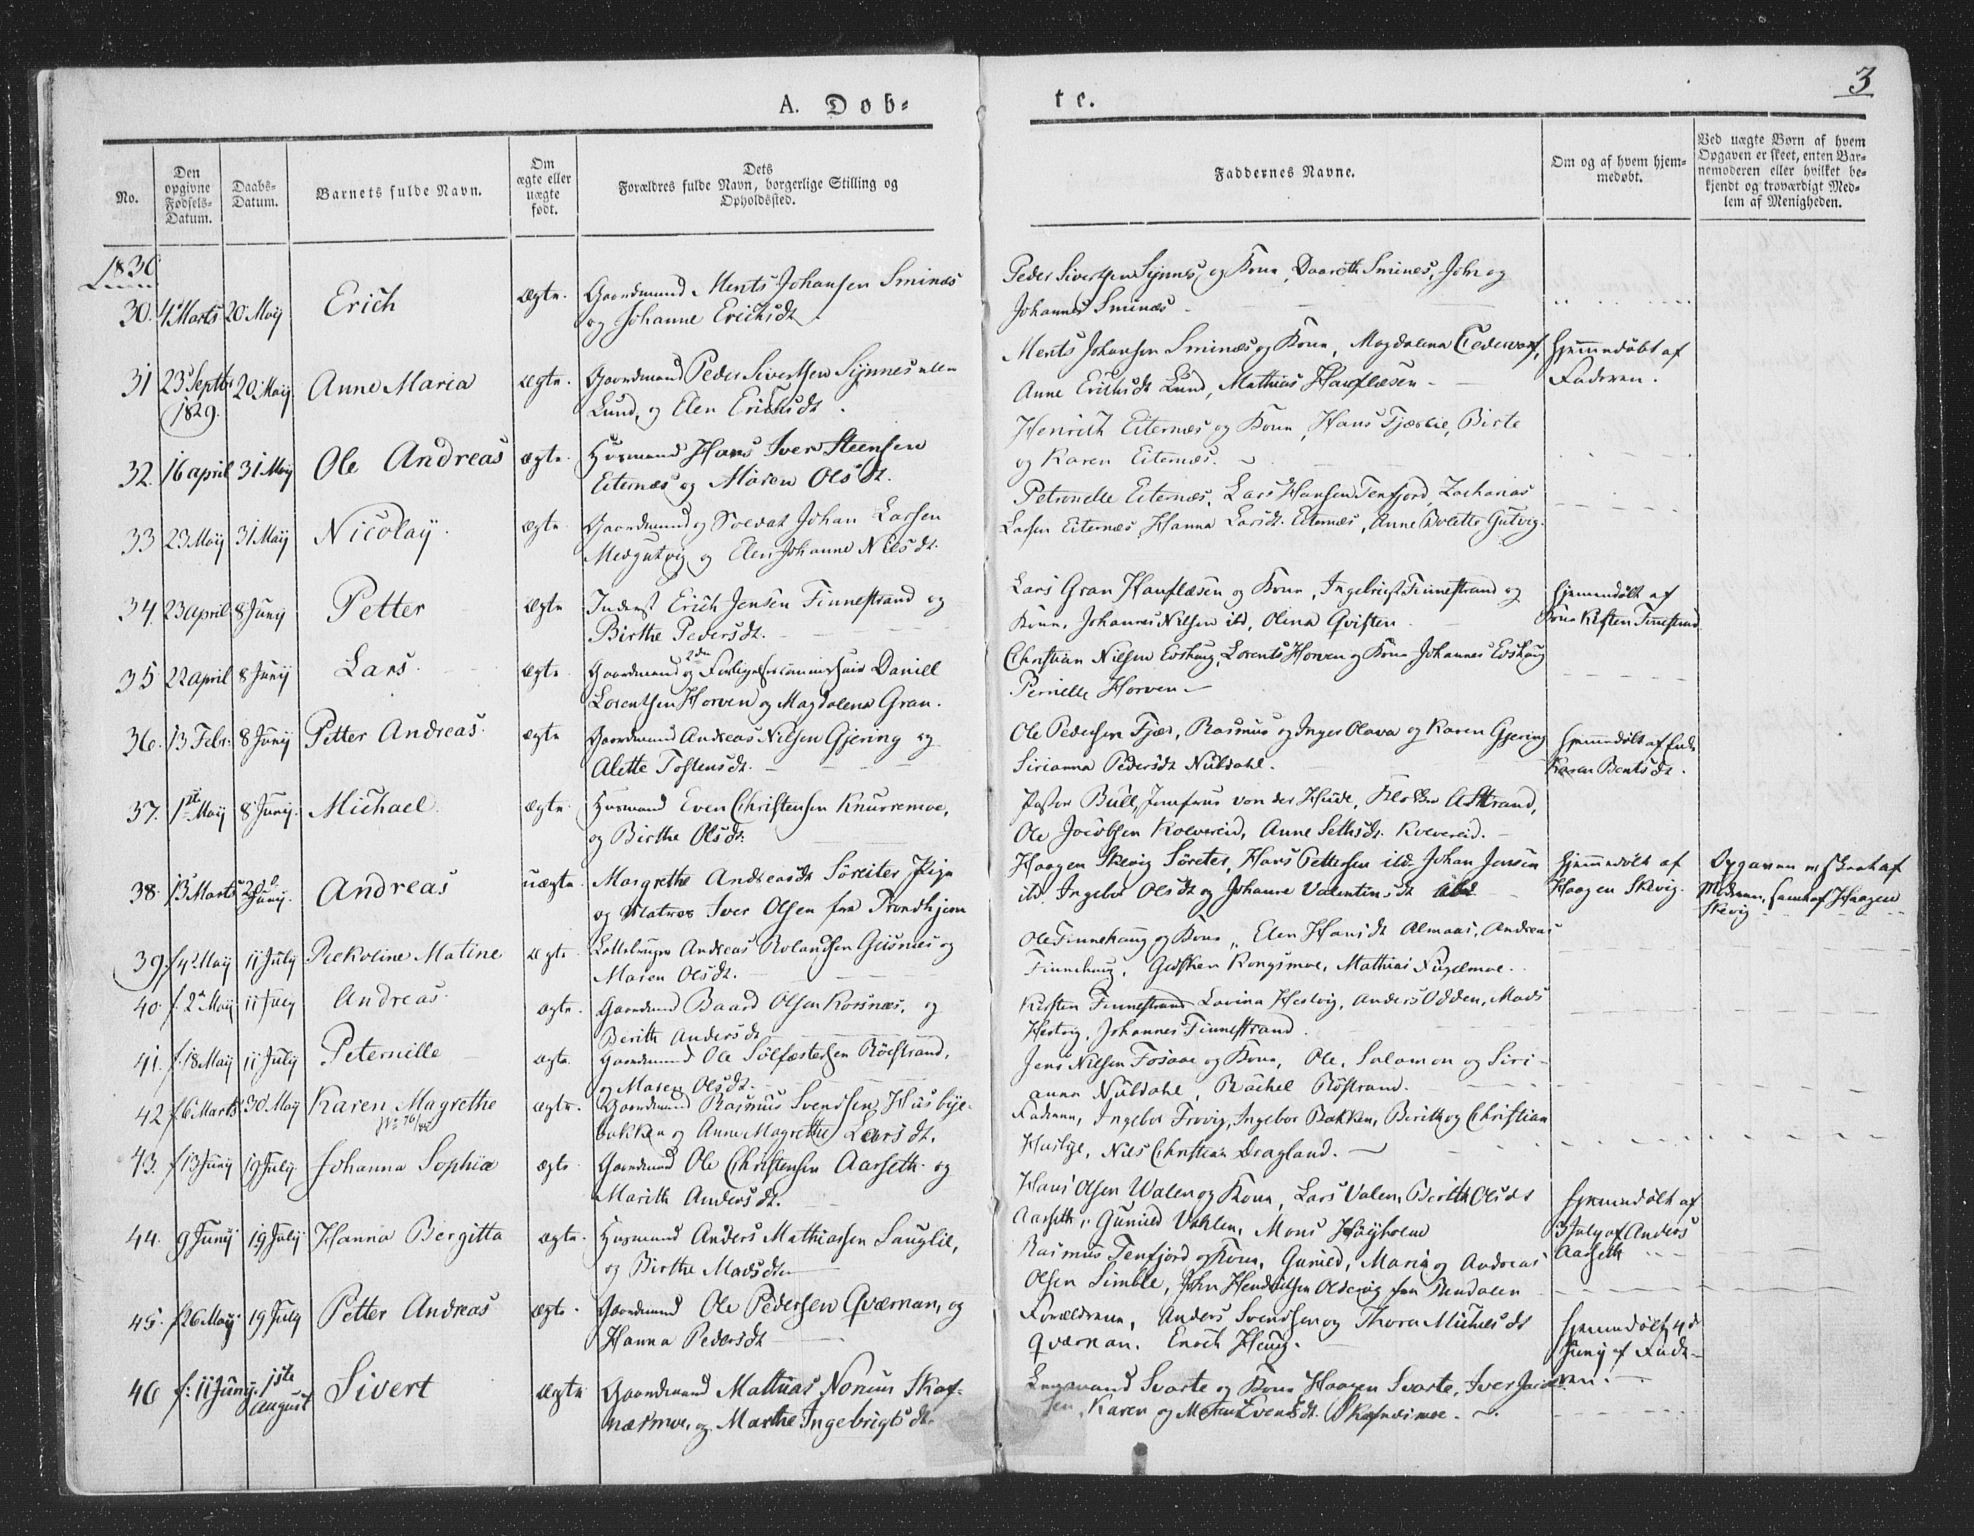 3
A. Døb-
te.
No.
Den opgivne Fødsels-Datum.
Daabs-Datum.
Barnets fulde Navn.
Om ægte eller uægte født.
Dets
Forældres fulde Navn, borgerlige Stilling og
Opholdssted.
Faddernes Navne.
Om og af hvem hjem-
medøbt.
Ved uægte Børn af hvem
Opgaven er skeet, enten Bar-
nemoderen eller hvilket be-
kjendt og troværdigt Med-
lem af Menigheden.
1830
30. 4 Marts 20 Maij Erich ægte. Gaardmand Ments Johansen Sminæs
og Johanne Erichsdt.
Peder Sivertsen Synnes og Kone, Daareth Smines, John og
Johannes Sminæs
31 23 Septbr 1829. 20 Maij Anne Maria ægte. Gaardmand Peder Sivertsen Synnes
Lund, og Elen Erichsdt.
Ments Johansen Sminæs og Kone, Magdalena
Anne Erichsdt Lund, Mathias Hauflæsen
Hjemmedøbt af
Faderen.
32. 16 april 31 Maij Ole Andreas ægte. Husmand Hans Iver Steensen
Eiternæs og Maren Olsdt.
Henrich Eiternæs og Kone, Hans Fjærlie, Birte
og Karen Eiternæs.
33 23 Maij 31 Maij Nicolaij ægte Gaardmand og Soldat Johan Larsen
Medgutvig og Elen Johanne Nilsdt.
Petronelle Eiternæs, Lars Hansen Tenfjord, Zacharias
Larsen Eiternæs Hanna Larsdt. Eiternæs, Anne Bolette Gutvig.
34. 23 april 8 Junij Petter ægte Inderst Erich Jensen Finnestrand og
Birthe Pedersdt.
Lars Gran Hauflæsen og Kone, Ingebrigt Finnestrand og
Kone, Johannes Nilsen ibd, Olina Qvisten
Hjemmedøbt af
Kone Kisten Finnestrand
35 22 april 8 Junij Lars ægte. Gaardmand og 2den Forligelsescommissair Daniel
Lorentsen Horven og Magdalena Gran.
Christian Nilsen Evshaug, Lorents Horven og Kone Johannes Evshaug
Pernille Horven
36. 13 Febr. 8 Junij Petter Andreas. ægte Gaardmand Andreas Nilsen Gjering og
Alette Tostensdt.
Ole Pedersen Fjær, Rasmus og Inger Olava og Karen Gjering
Sirianna Pedersdt Nubdahl.
Hjemmedøbt af
Karen Bentsdt.
37. 1ste Maij 8 Junij. Michael ægte. Husmand Even Christensen Knurremoe,
og Birthe Olsdt.
Pastor Bull, Jomfrue von der Hude, Klokker A Strand,
Ole Jacobsen Kolvereid, Anne Sethsdt. Kolvereid.
38. 13 Marts 2 Junij. Andreas uægte. Margrethe Andreasdt Sörviter Pige
og Matros Iver Olsen fra Trondhjem
Haagen Skevig Sörviter, Hans Pettersen ibd. Johan Jensen
ibd. Ingebor Olsdt og Johanne Valentinsdt ibd
Hjemmedøbt af
Haagen Skevig.
Opgaven er skeet af
Moderen, samt af Haagen
Skevig
39. f 4 Maij 11 July Rekoline Matine ægte Andreas Rolandsen Geisnæs og
Maren Olsdt.
Ole Finnehaug og Kone, Elen Hansdt Almaas, Andreas
Finnehaug, Gidsken Kongsmoe, Mathias Fugelmoe.
40. f. 2 Maij 11 July Andreas. ægte. Gaardmand Baard Olsen Korsnæs, og
Berith Andersdt
Kirsten Finnestrand Lovina Hestvig, Anders Odden, Mads
Hestvig, Johannes Finnestrand.
41. f. 18 Maij 11 July Peternille ægte. Gaardmand Ole Sølfæstersen Röestrand,
og Maren Olsdt.
Jens Nilsen Fosaae og Kone, Ole, Salamon og Siri-
anna Nubdahl, Rachel Röstrand.
42. f 6 Marts 30 Maij Karen Magrethe ægte. Gaardmand Rasmus Svendsen Husbye-
bakken og Anne Magrethe Larsdt.
Faderen, Ingebor Frovig, Ingebor Bakken, Berith og Christian
Husbye, Nils Christian Dragland.
43. f 13 Junij 19 July. Johanna Sophia ægte Gaardmand Ole Christensen Aarseth og
Marith Andersdt.
Hans Olsen Walen og Kone, Lars Valen, Berith Olsdt
Aarseth, Gunild Vahlen, Mons Höyholm
Hjemmedøbt af
3 July af Anders
Aarseth
44. 9 Junij 19 July Hanna Bergitta ægte. Husmand Anders Mathiasen Sauglie,
og Birthe Madsdt
Rasmus Tenfjord og Kone, Gunild, Maria og Andreas
Olsen Simble, John Hendrichsen Oldervig fra Bindalen
45. f 26 Maij 19 July Petter Andreas ægte. Gaardmand Ole Pedersen Qværnan, og
Hanna Pedersdt
Forældrene, Anders Svendsen og Thora Michelsdt
Qværnan. Enoch Houg.
Hjemmedøbt 4de
Junij af Fade-
ren.
46 f: 11 Junij. 1ste August Sivert ægte Gaardmand Mathias Nonum Skaf-
næsmoe, og Marthe Ingebrigtsdt.
Svarte og Kone Haagen Svarte, Iver
sen, Karen og Evensdt. Skafnæsmoe.